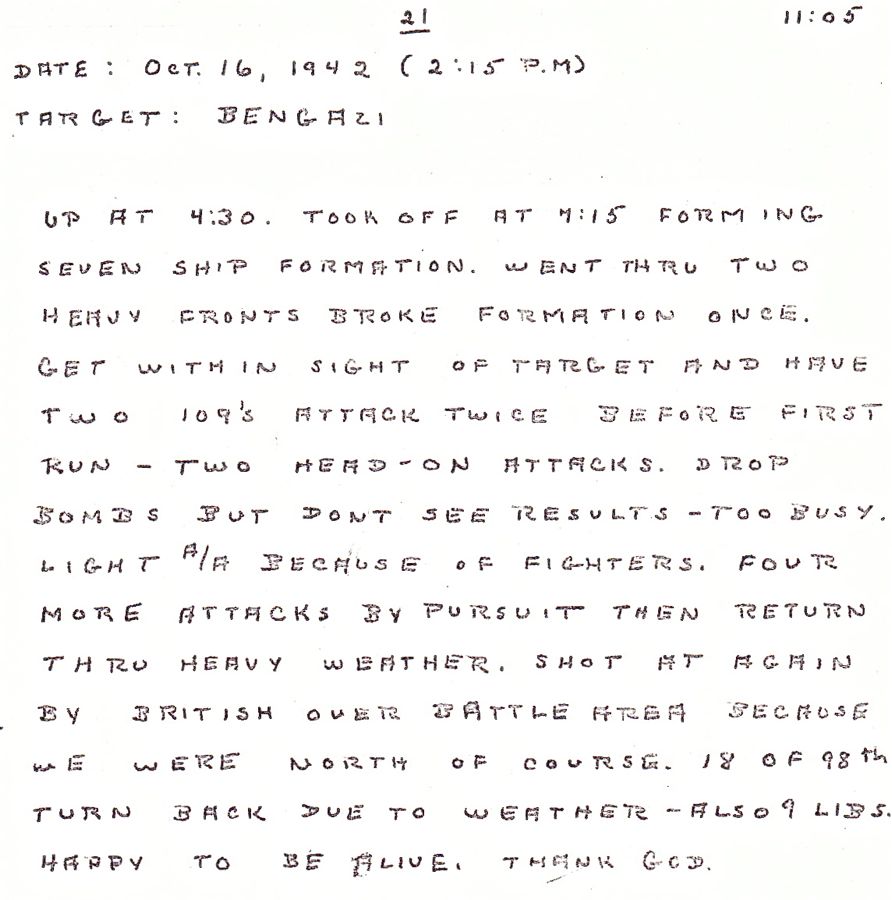 21 11:05
DATE: OCT. 16, 1942 (2:15 P.M)
TARGET: BENGAZI
UP AT 4:30. TOOK OFF AT 7:15 FORMING
SEVEN SHIP FORMATION. WENT THRU TWO
HEAVY FRONTS BROKE FORMATION ONCE.
GET WITHIN SIGHT OF TARGET AND HAVE
TWO 109's ATTACK TWICE BEFORE FIRST
RUN - TWO HEAD-ON ATTACKS. DROP
BOMBS BUT DONT SEE RESULTS - TOO BUSY.
LIGHT A/A BECAUSE OF FIGHTERS. FOUR
MORE ATTACKS BY PURSUIT THEN RETURN
THRU HEAVY WEATHER. SHOT AT AGAIN
BY BRITISH OVER BATTLE AREA BECAUSE
WE WERE NORTH OF COURSE. 18 OF 98th
TURN BACK DUE TO WEATHER - ALSO 9 LIBS.
HAPPY TO BE ALIVE. THANK GOD.